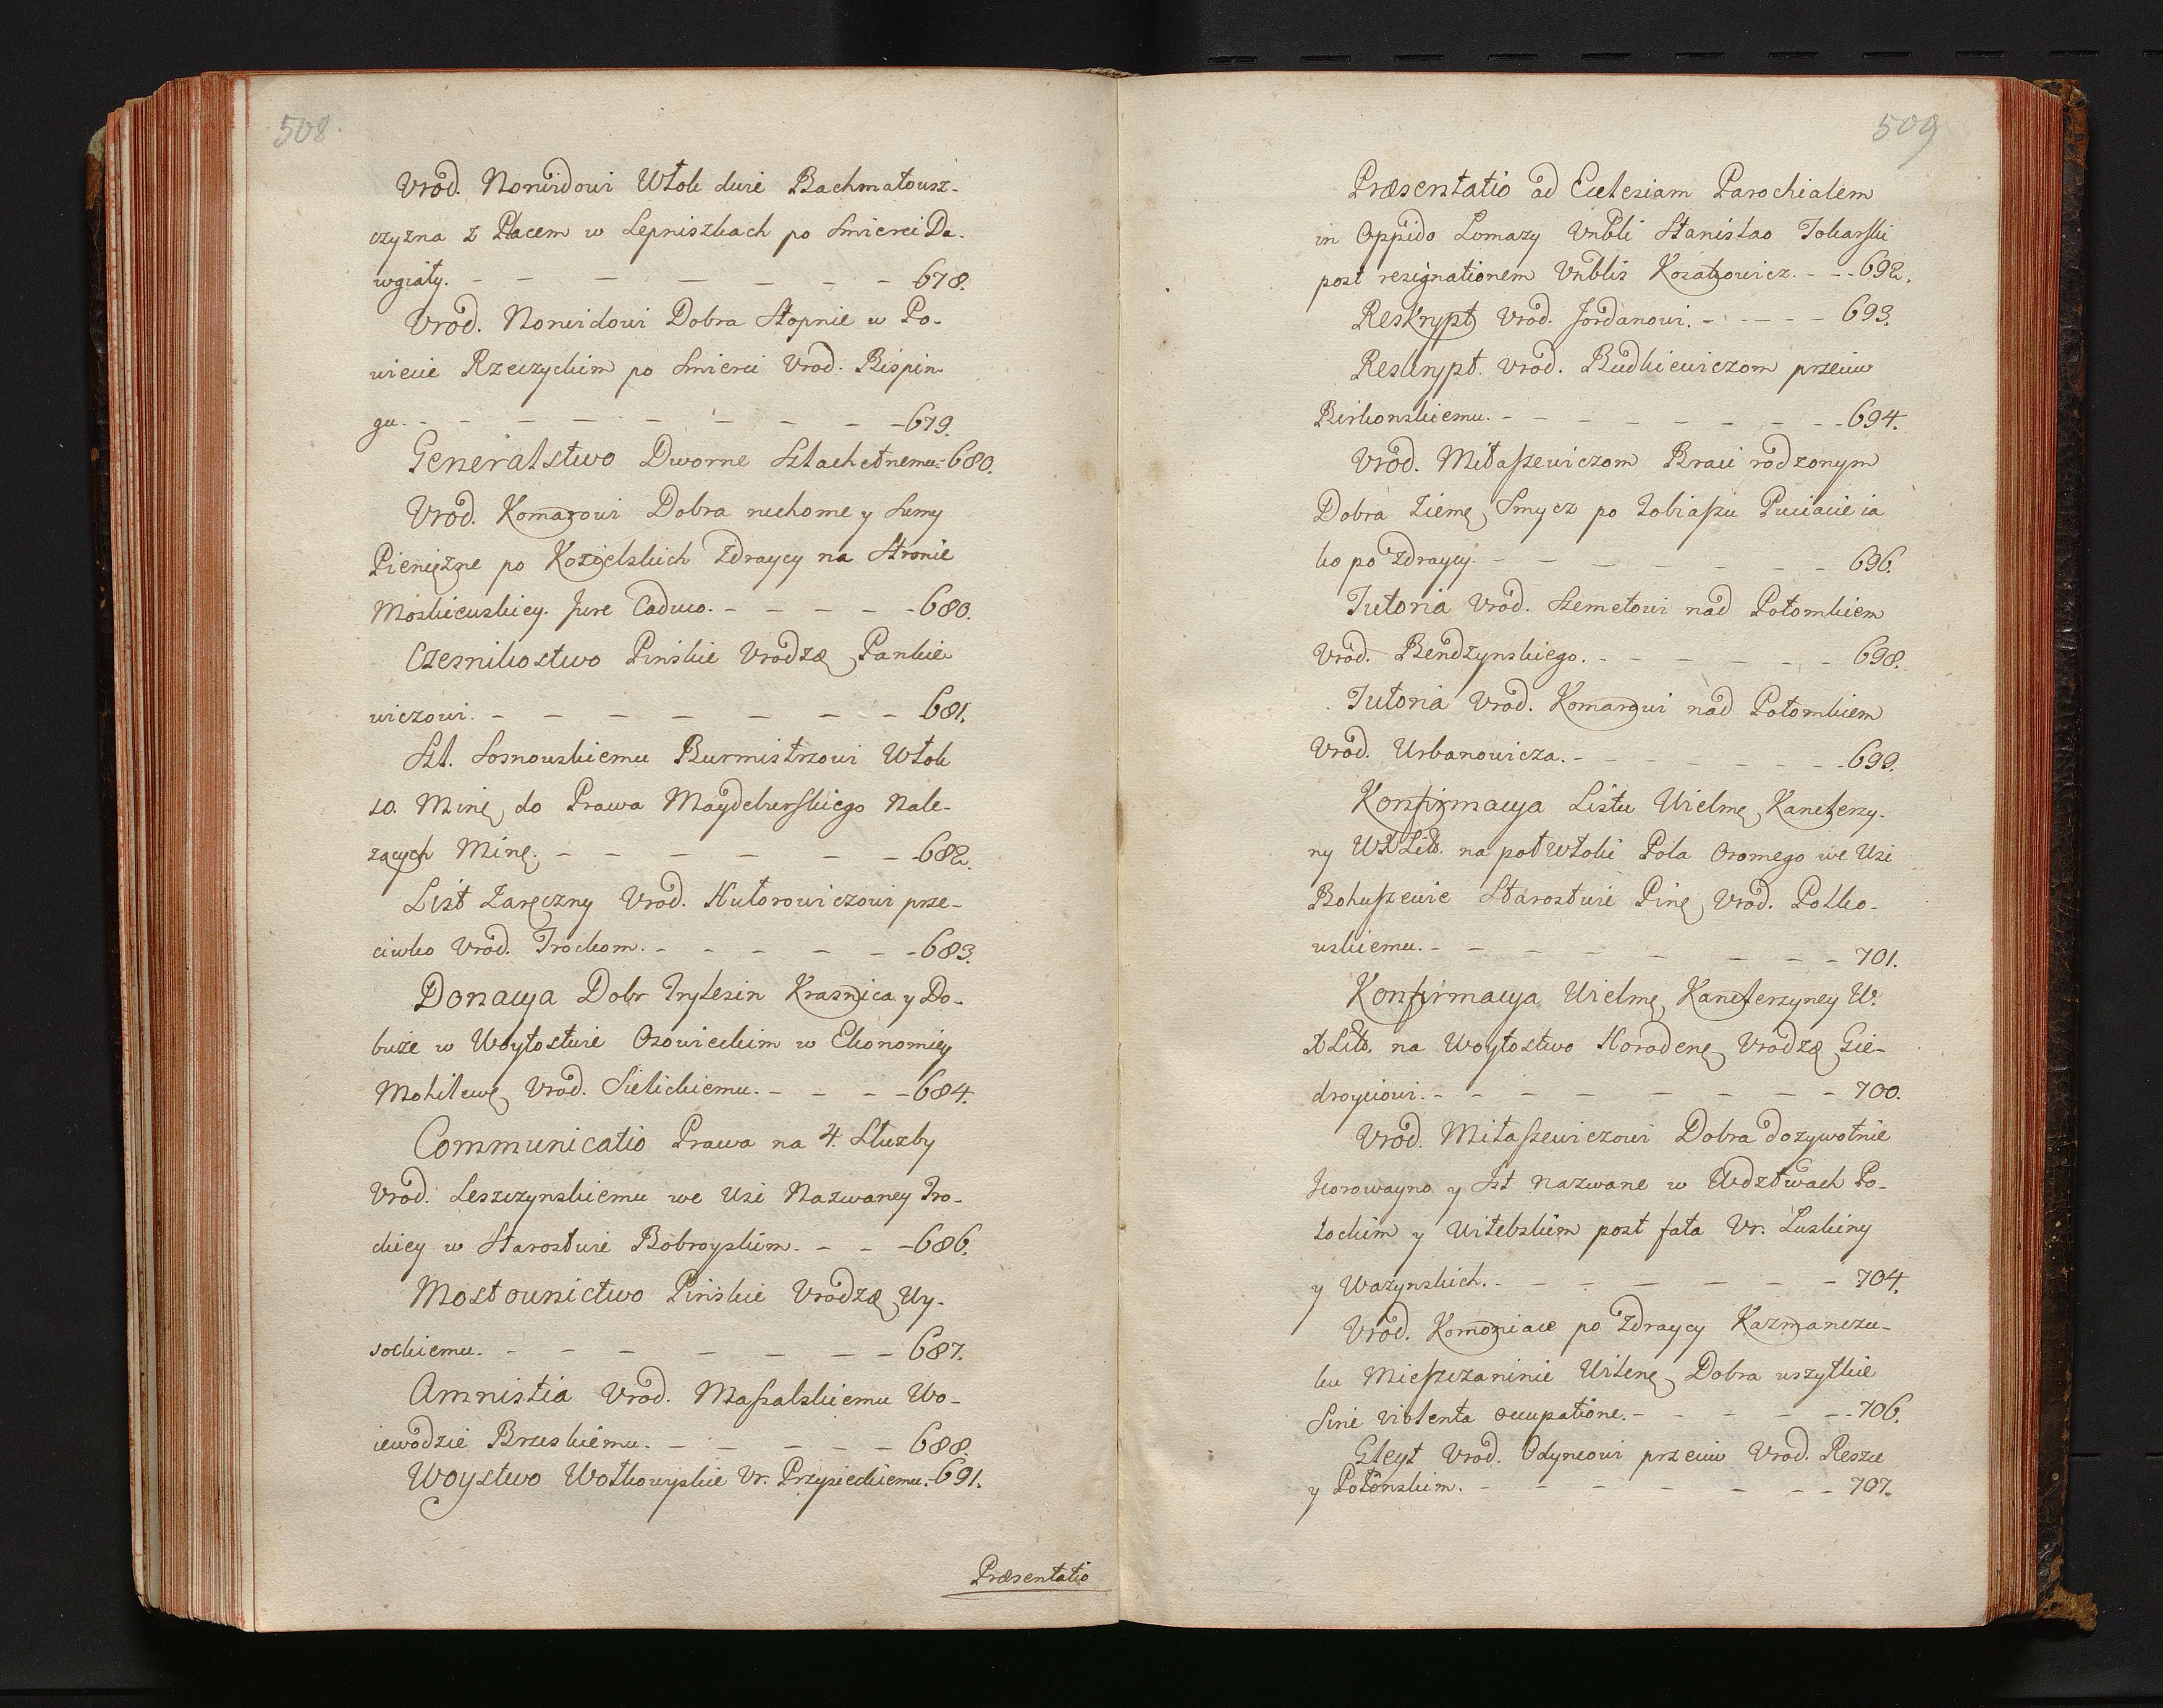 508.
Vrod. Norwidowi Włok dwie Bachmatowsz-
czyzna z Placem w Lepniszkach po Smierci Do-
wgiały. - - - - - - - 678.
Vrod. Norwidowi Dobra Stopnie w Po-
wiecie Rzeczyckim po Smierci Vrod. Bispin
gu. - - - - - - - - 679.
Generalstwo Dworne Szlachetnemu. 680.
Vrod. Komarowi Dobra ruchome y Sumy
Pieniężne po Kozielskich Zdraycy na Stronie
Moskiewskiey. Jure Caduco. - - - - - 680.
Czesnikostwo Pinskie Vrodzo Pankie
wiczowi. - - - - - - - 681.
Szl. Sosnowskiemu Burmistrzowi Włok
10. Minę do Prawa Maydeburskiego Nale-
zących Minę. - - - - - - - 682.
List Zaręczny Vrod. Hutorowiczowi prze-
ciwko Vrod. Trockom. - - - - - - 683.
Donacya Dobr Trylesin Krasnica y Do-
buże w Woytostwie Osowieckim w Ekonomiey
Mohilewę Vrod. Sielickiemu. - - - - 684.
Communicatio Prawa na 4. Służby
Vrod. Leszczynskiemu we Wsi Nazwaney Tro-
ckiey w Starostwie Bobroyskim. - - - 686.
Mostownictwo Pińskie Vrodzo Wy-
sockiemu. - - - - - - - 687.
Amnistia Vrod. Maszalskiemu Wo-
iewodzie Brzeskiemu. - - - - - 688.
Woystwo Wołkowyskie Vr. Przysieckiemu. 691.
Præsentatio
509
Præsentatio ad Ecclesiam Parochialem
in Oppido Lomazy Vnbli Stanislao Tokarski
post resignationem Vnblis Kozakowicz. - - 692.
Reskrypt Vrod. Jordanowi. - - - - 693.
Reskrypt Vrod. Budkiewiczom przeciw
Birkonskiemu. - - - - - - - - 694.
Vrod. Miłaszewiczom Braci rodzonym
Dobra Ziemę Smycz po Tobiaszu Puciacie ia
ko po Zdraycy. - - - - - - 696.
Tutoria Vrod. Szemetowi nad Potomkiem
Vrod. Bendzynskiego. - - - - - 698.
Tutoria Vrod. Komarowi nad Potomkiem
Vrod. Urbanowicza. - - - - - - - 699.
Konfirmacya Listu Wielmę Kanclerzy-
ny WXLitt. na poł Włoki Pola Oromego we Wsi
Bohuszewie Starostwie Pinę Vrod. Połko-
wskiemu. - - - - - - - 701.
Konfirmacya Wielmę Kanclerzyney W.
XLitt. na Woytostwo Horodenę Vrodzo Gie-
droyciowi. - - - - - - - 700.
Vrod. Miłaszewiczowi Dobra dozywotnie
Horowayno y Szt nazwane w Wdztwach Po-
łockim y Witebskim post fata Vr. Luskiny
y Wazynskich. - - - - - - - 704.
Vrod. Komoniace po Zdraycy Kazmanczu-
ku Mieszczaninie Wilenę Dobra wszytkie
Sine violenta occupatione. - - - - - 706.
Gleyt Vrod. Odyncowi przeciw Vrod. Reszce
y Połonskim. - - - - - - - 707.